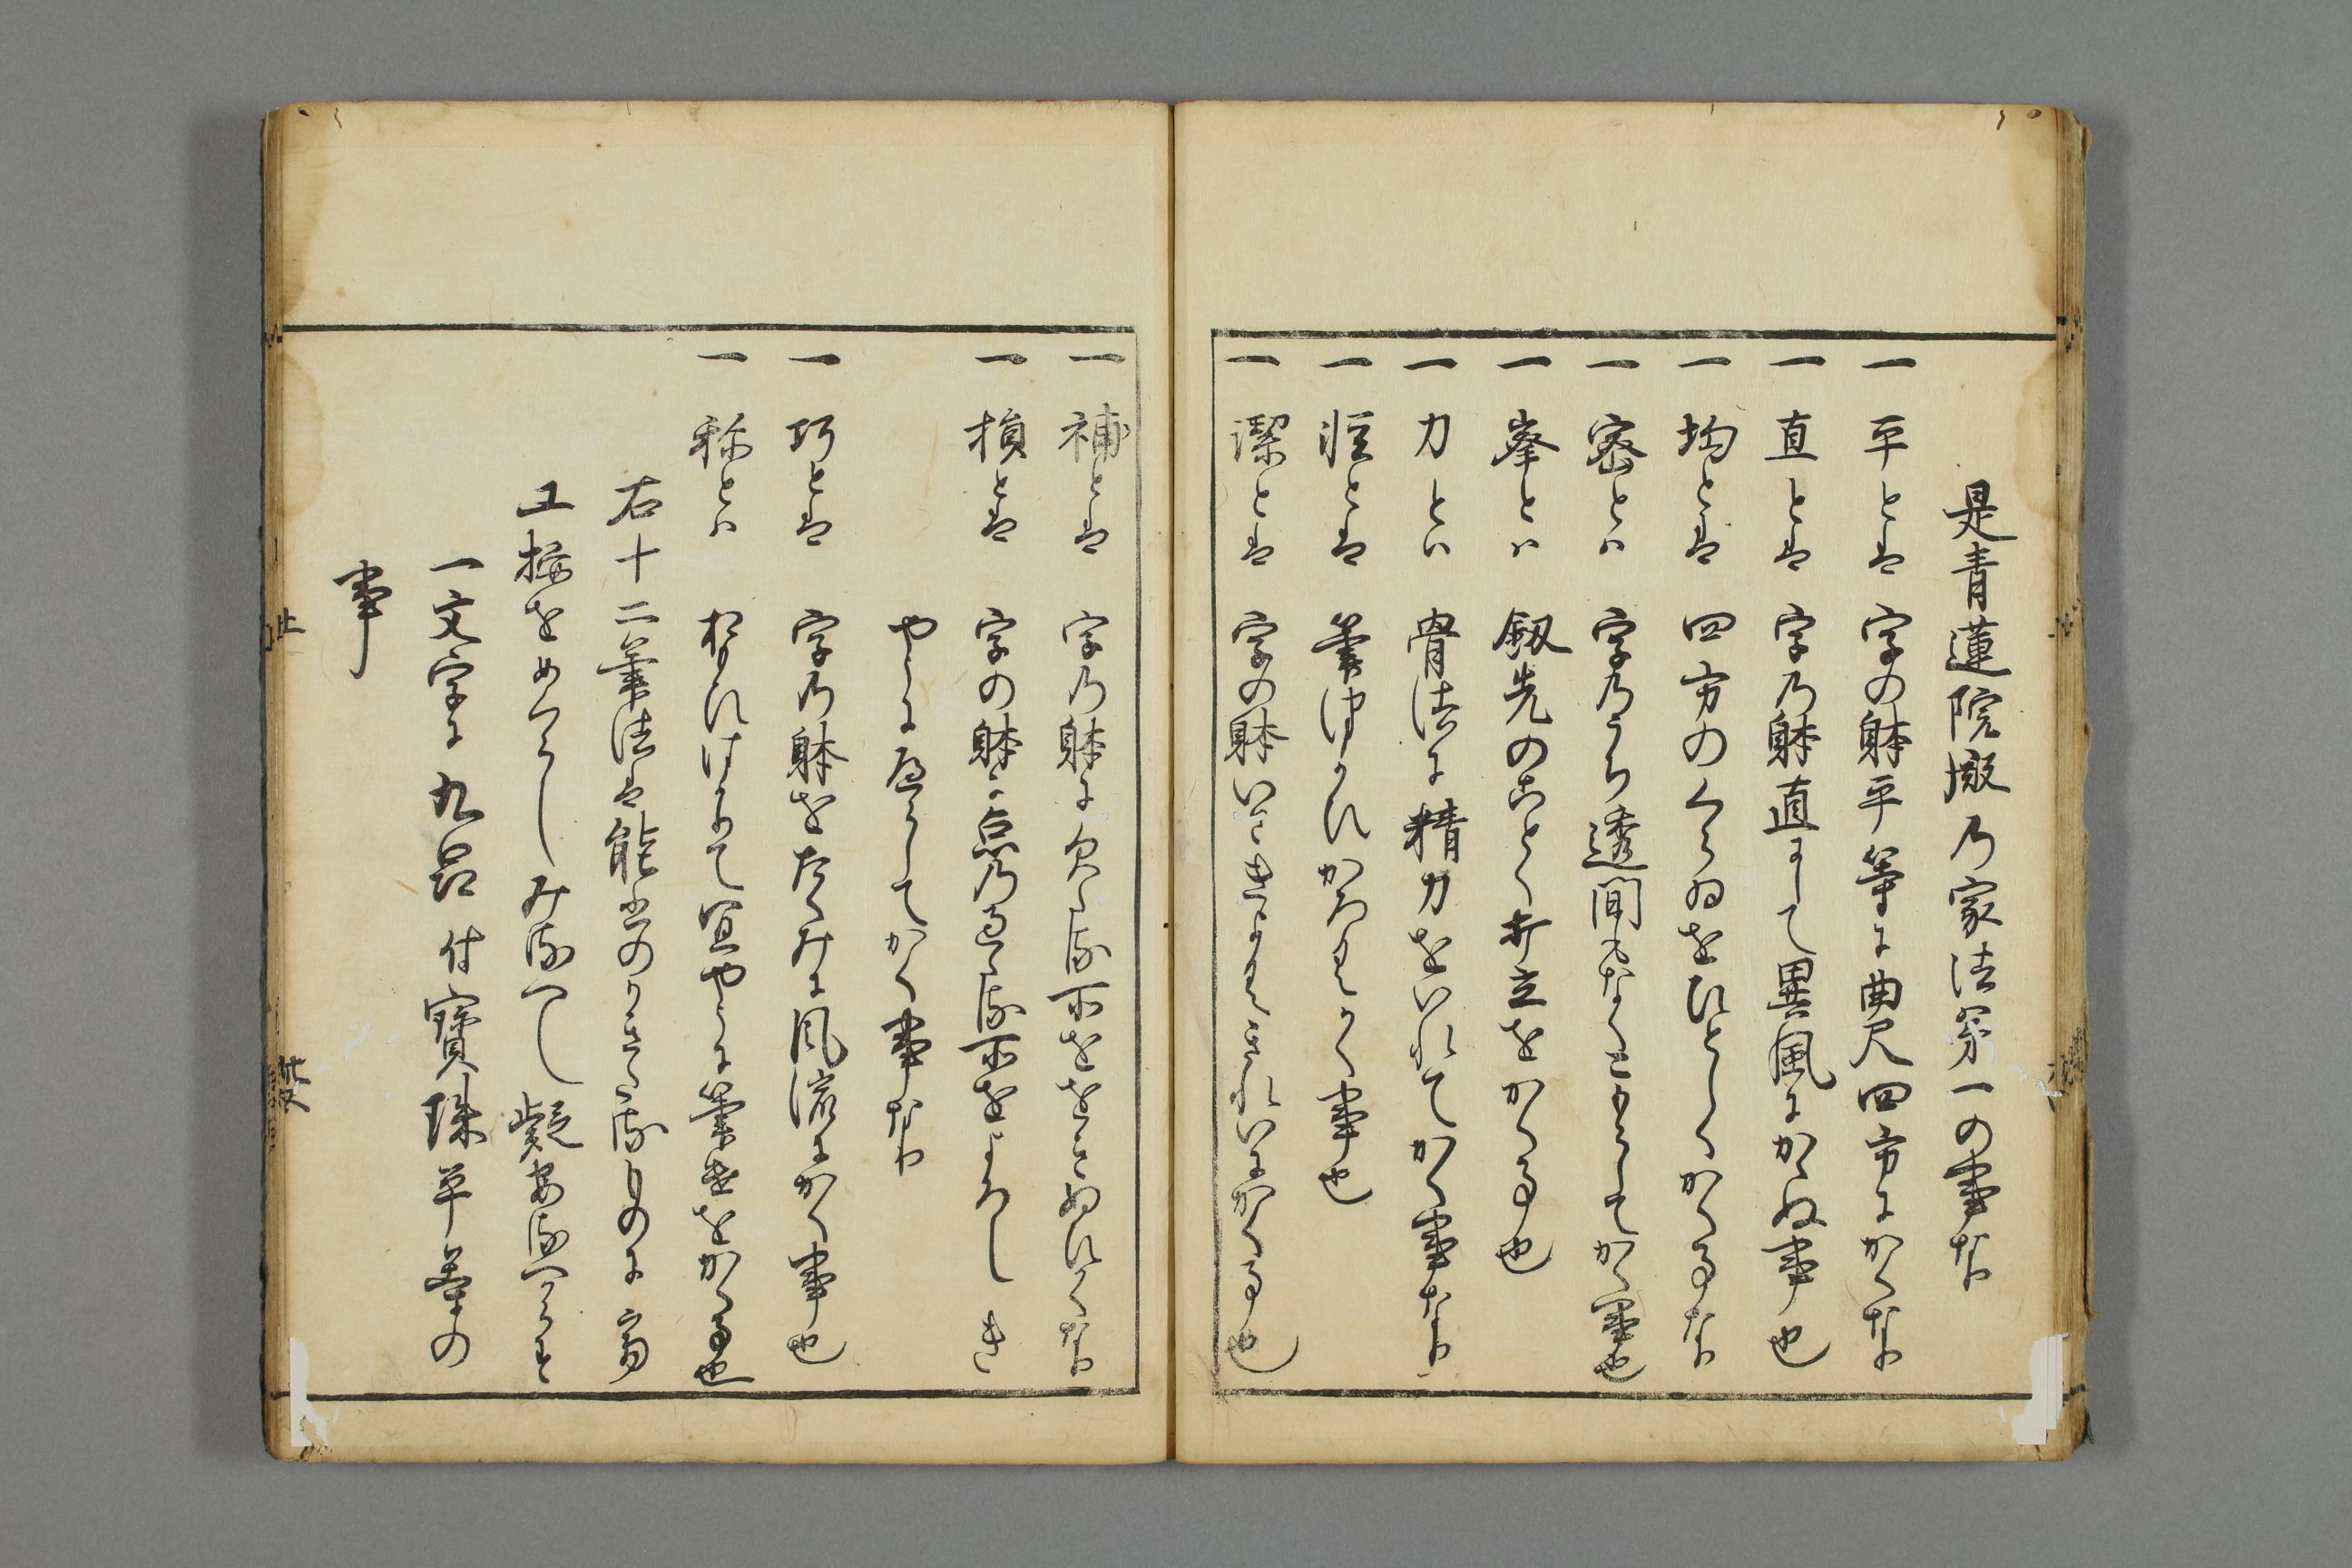 是青蓮院殿乃家法第一の事なり
一 平とは 字の躰平等に曲尺四方にかくなり
一 直とは 字乃躰直にして異風にかゝぬ事也
一 均とは 四方のくらゐをひとしくかくるなり
一 密とハ 字乃うち透間もなくこまうしてかく事也
一 峯とハ 釼先のことく折立をかくる也
一 力とハ 骨法に精力をいれてかく事なり
一 怪とは 筆つかひかろくかく事也
一 潔とは 字の躰いさきよくきれいにかくる也
一 補とは 字乃躰に欠る所ををきぬひかくなり
一 損とは 字の躰に点乃過る所をよろしき
やうに尽うしてかく事なり
一 巧とは 字乃躰をたくみに風流にかく事也
一 称とハ 相かひはかりて宜やうに筆道をかくる也
右十二筆法は能書のかきたる物に高
工授をめくらしみるへし疑あるへからす
一文字に九品 付寳珠平等の
事